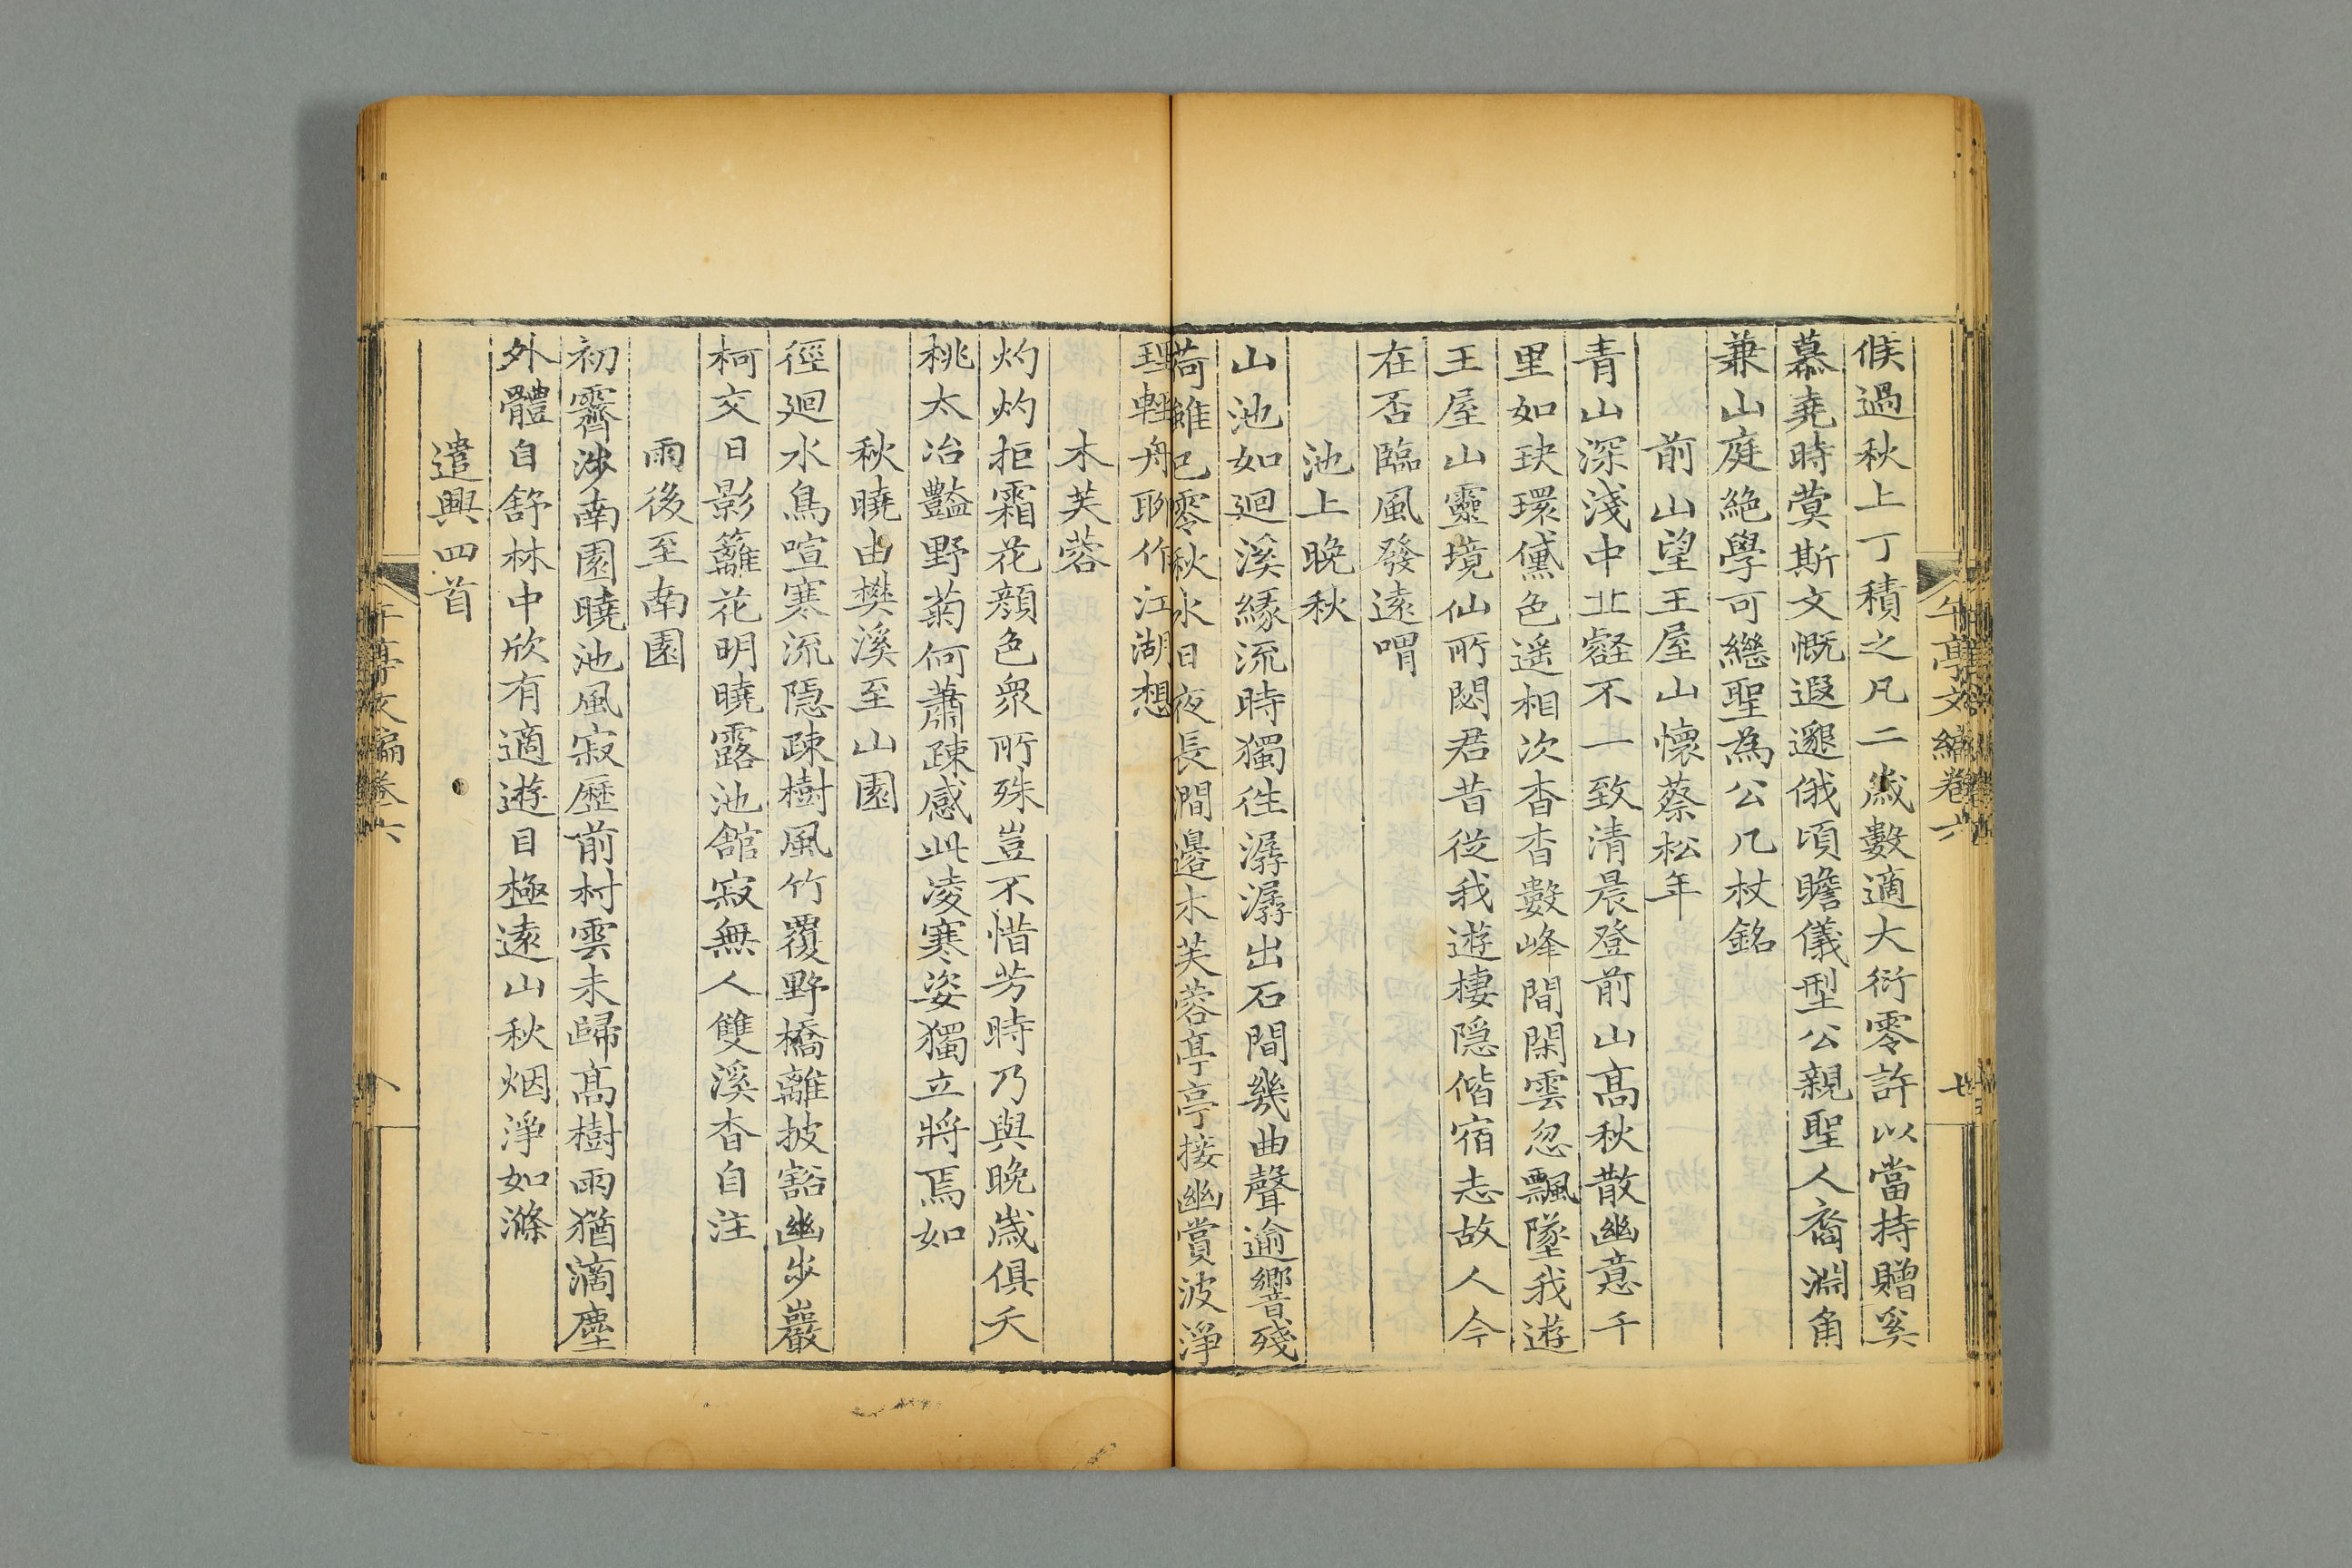 候過秋上丁積之凡二歲數適大衍零許以當持贈奚
慕堯時蓂斯文慨遐邈俄頃瞻儀型公親聖人裔淵角
兼山庭絶學可繼聖為公几杖銘
前山望王屋山懷蔡松年
青山深淺中北壑不一致清晨登前山高秋散幽意千
里如玦環黛色遥相次杳杳數峰間閑雲忽飄墜我遊
王屋山靈境仙所閟君昔從我遊棲隱偕宿志故人今
在否臨風發遠喟
池上晚秋
山池如迴溪緣流時獨往潺潺出石間幾曲聲逾響殘
荷雖已零秋水日夜長澗邊木芙蓉亭亭接幽賞波淨
理輕舟聊作江湖想
木芙蓉
灼灼拒霜花顔色衆所殊豈不惜芳時乃與晚歲俱夭
桃太冶豔野菊何蕭疎感此凌寒姿獨立將焉如
秋曉由樊溪至山園
徑迴水鳥喧寒流隱疎樹風竹覆野橋離披豁幽步巖
柯交日影籬花明曉露池舘寂無人雙溪杳自注
雨後至南園
初霽涉南園曉池風寂歷前村雲未歸高樹雨猶滴塵
外體自舒林中欣有適遊目極遠山秋烟淨如滌
遣興四首
午亭文編卷六
午亭文編卷六